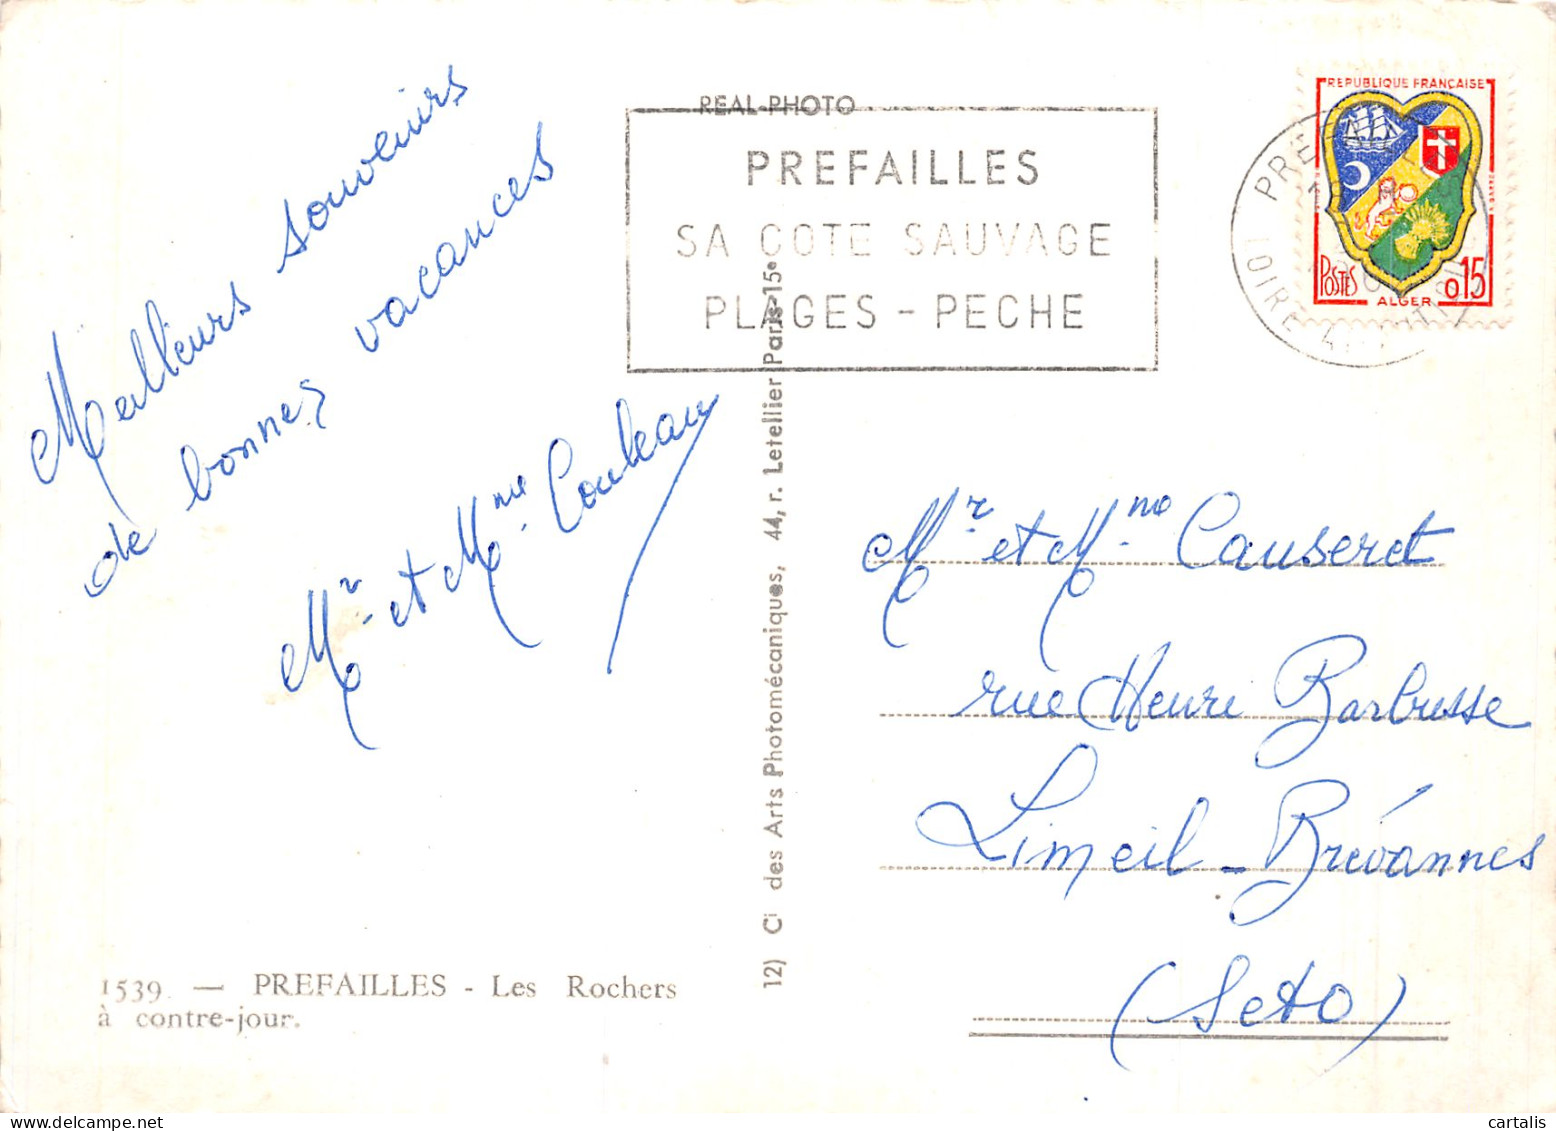 Meilleurs souvenirs
de bonnes vacances
Mr et Mme
REAL-PHOTO
PREFAILLES
SA COTE SAUVAGE
PLAGES - PECHE
REPUBLIQUE FRANÇAISE
POSTES
ALGER
0,15
LOIRE
12) Ci des Arts Photomécaniques, 44, r. Letellier Paris-15e
Mr et Mme Causeret
rue Henri Barbusse
Limeil-Brévannes
(Seto)
1539. — PREFAILLES - Les Rochers
à contre-jour.